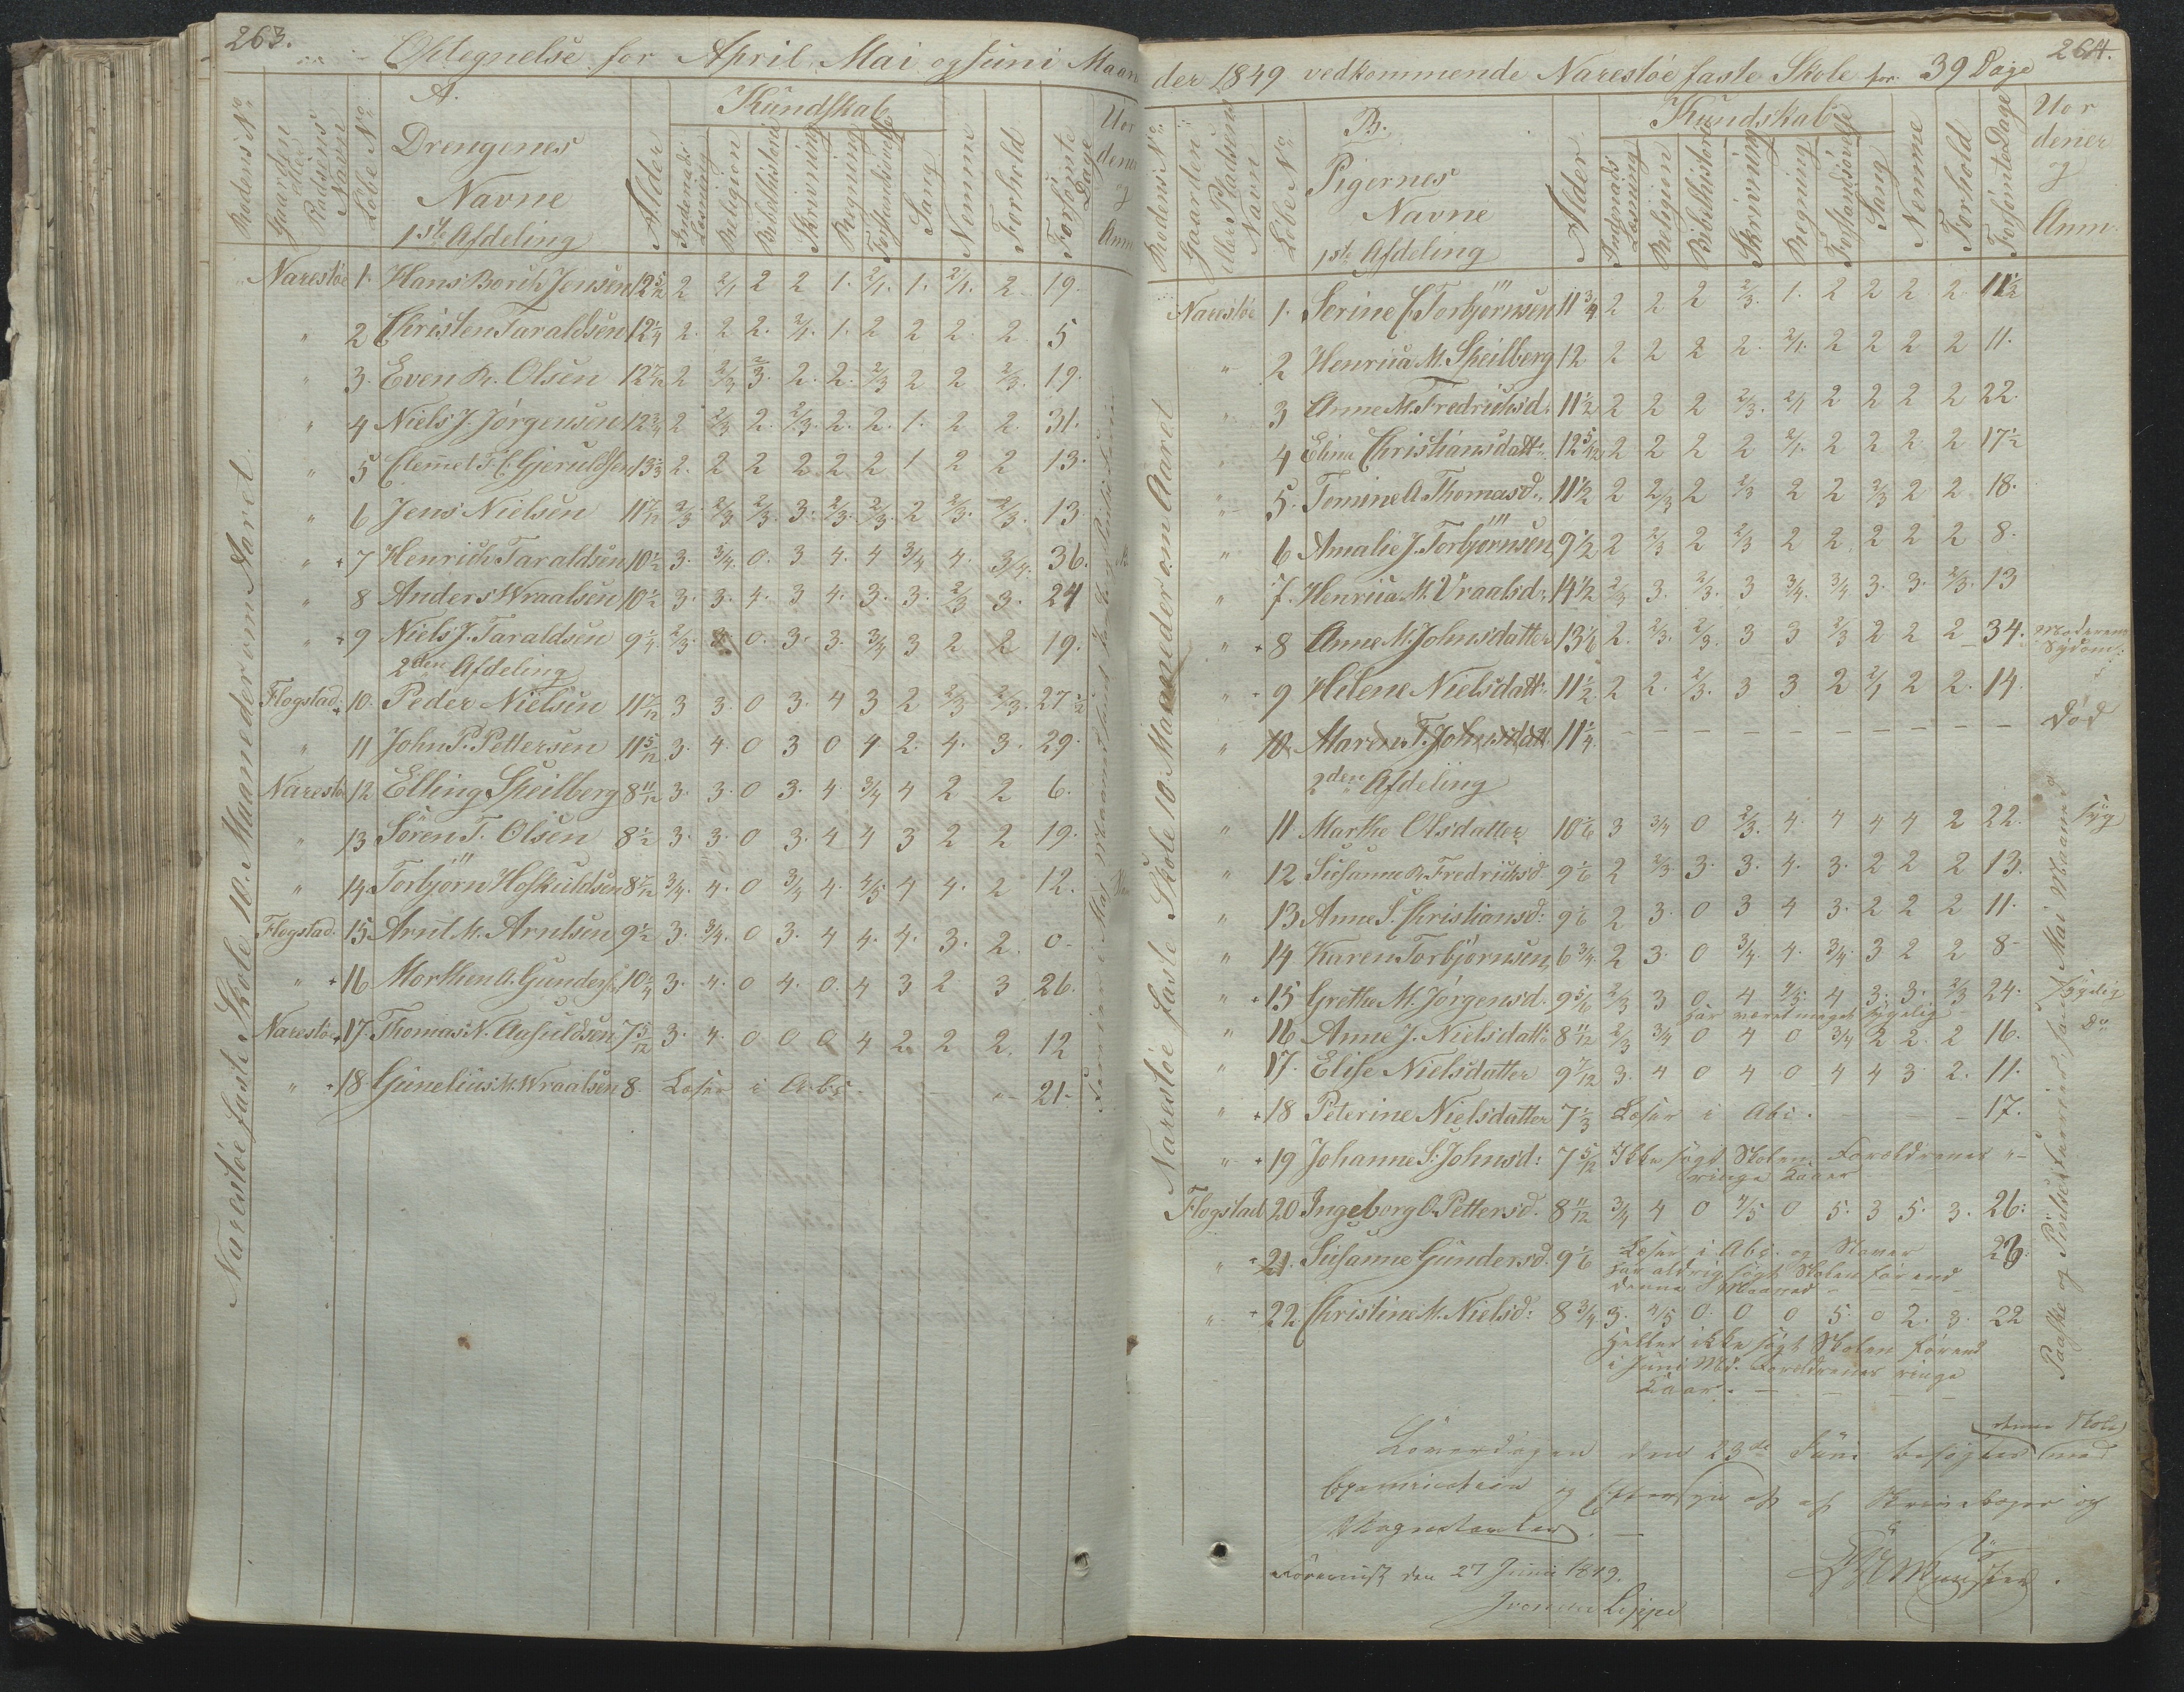 263.
Optegnelse for April Mai og Juni Maan
A.
Kundskab
Rodens No.
Gaarden eller Pladsens Navn
Løbe No.
Drengenes
Navne
1ste Afdeling
Alder
Indenads Læsning
Religion
Bibelhistorie
Skrivning
Regning
Forstandsøvelse
Sang
Nemme
Forhold
Forsømte Dage
Narestöe faste Skole 10. Maaneder om Aaret
Narestöe 1. Hans Borith Jensen 12 5/12 2 2/1 2 2 1. 2/1. 1. 2/1. 2 19.
" 2 Christen Taraldsen 12 1/4 2. 2 2. 2/1. 1. 2 2 2. 2 5
" 3. Even R. Olsen 12 7/12 2 2/3 2/3. 2. 2. 2/3 2 2 2/3. 19.
" 4 Niels J. Jörgensen 12 3/4 2 2/3 2. 2/3. 2. 2. 1. 2 2. 31.
" 5 Clemet F. C. Gjeruldsen 13 1/3 2. 2 2 2 2 2 1 2 2 13.
" 6 Jens Nielsen 11 7/12 2/3. 2/3 2/3. 3. 2/3. 2/3. 2 2/3. 2/3. 13
" +7 Henrich Taraldsen 10 1/2 3. 3/4. 0. 3 4. 4 3/4 4. 3/4. 36.
" 8 Anders Wraalsen 10 1/2 3. 3. 4. 3 4. 3. 3. 2/3 3. 24
" +9 Niels J. Taraldsen 9 1/4 2/3. 3 0. 3. 3. 3/4 3 2 2 19.
2den Afdeling
Flogstad. 10. Peder Nielsen 11 7/12 3 3. 0 3. 4 3 2 2/3 2/3. 27 1/2
" 11 John P. Pettersen 11 5/12 3. 4. 0 3 0 4 2. 4. 3. 29.
Narestöe 12 Elling Speilberg 8 11/12 3. 3. 0 3. 4. 3/4 4 2 2 6.
" 13 Sören T. Olsen 8 1/2 3. 3. 0 3. 4 4 3 2 2 19.
" 14. Torbjörn Hofkuldsen 8 7/12 3/4. 4. 0 3/4 4. 4/5 4 4. 2 12.
Flogstad. 15 Arnt M. Arntsen 9 1/2 3. 3/4. 0 3. 4 4. 4. 3. 2. 0-
" +16 Morthen A. Gunders. 10 1/4 3. 4. 0 4. 0. 4 3 2 3 26.
Narestöe +17. Thomas N. Aasuldsen 7 5/12 3. 4. 0 0 0 4 2 2 2. 12
" +18 Gunelius M. Wraalsen 8. Læser i Abc. 21-
264.
der 1849 vedkommende Narestöe faste Skole for 39 Dage
B.
Kundskab
Rodens No.
Gaarden eller Pladsens Navn
Löbe No.
Pigernes
Navne
1ste Afdeling
Alder
Indenads Læsning
Religion
Bibelhistorie
Skrivning
Regning
Forstandsövelse
Sang
Nemme
Forhold
Forsömte Dage
Uor
dener
og
Anm.
Narestöe faste Skole 10. Maaneder om Aaret
Narestöe 1. Serine C. Torbjörnsen 11 3/4 2 2 2 2/3. 1. 2 2 2. 2. 11 1/2
" 2 Henrica M. Speilberg 12. 2 2 2 2. 2/1. 2 2 2 2 11.
" 3 Anne M. Fredrichsd. 11 1/2 2 2 2 2/3. 2/1 2 2 2 2 22.
" 4 Elina Christiansdatt. 12 5/12 2 2 2 2 2/1. 2 2 2 2 17 1/2
" 5. Tomine A. Thomasd. 11 1/2 2 2/3 2 2/3 2 2 2/3 2 2 18.
" 6 Amalie J. Torbjörnsen 9 1/2 2 2/3 2 2/3 2 2 2 2 2 8.
" 7. Henrica M. Vraalsd. 14 1/2 2/3 3. 2/3. 3 3/4. 3/4 3. 3. 2/3. 13
" +8 Anne M. Johnsdatter 13 1/6 2. 2/3. 2/3. 3 3 2/3 2 2 2 34. Moderens Sygdom.
" +9 Helene Nielsdatt. 11 1/2 2 2. 2/3. 3 3 2 2/1 2 2. 14.
" 10. Maren T. Johnsdatt. 11 1/4. Död
2den Afdeling
" 11 Marthe Olsdatter 10 1/6 3 3/4 0 2/3. 4. 4 4 4 2 22. syg
" 12 Susanne R. Fredrichsd. 9 1/6 2 2/3 3. 3. 4. 3. 2 2 2 13.
" 13 Anne S. Christiansd: 9 1/6 2 3. 0 3 4 3. 2 2 2 11.
" 14 Karen Torbjörnsen 6 3/4 2 3. 0 3/4. 4. 3/4. 3 2 2 8-
" +15 Grethe M. Jörgensd. 9 5/6 2/3 3 0 4 4/5. 4 3. 3. 2/3 24. sygelig
har været meget sygelig
" 16 Anne J. Nielsdatt. 8 11/12 2/3 3/4 0 4 0 3/4 2 2. 2 16. Do
" 17. Elise Nielsdatter 9 7/12 3. 4 0 4 0 4 4 3. 2. 11.
" +18 Peterine Nielsdatter 7 1/3 Læser i Abc. 17.
" +19 Johanne S. Johnsd: 7 5/12 Ikke sögt Skolen Forældrenes "
ringe Kaar
Flogstad 20 Ingeborg O. Pettersd. 8 11/12 3/4 4 0 4/5 0 5. 3 5. 3. 26.
" +21. Susanne Gundersd. 9 1/6 Læser i Abc. og Staver 26.
har aldrig sögt Skolen för end
denne Maaned
" +22 Christine M. Nielsd: 8 3/4 3. 4/5 0. 0 0 5. 0 2. 3. 22
Heller ikke sögt Skolen förend
i Juni Md. Forældrenes ringe
Kaar.
Paaske og Pintse Ferier
Löverdagen den 23de Juni besögtes denne Skole med
Examination og Eftersyn af
den 27 Juni 1849.